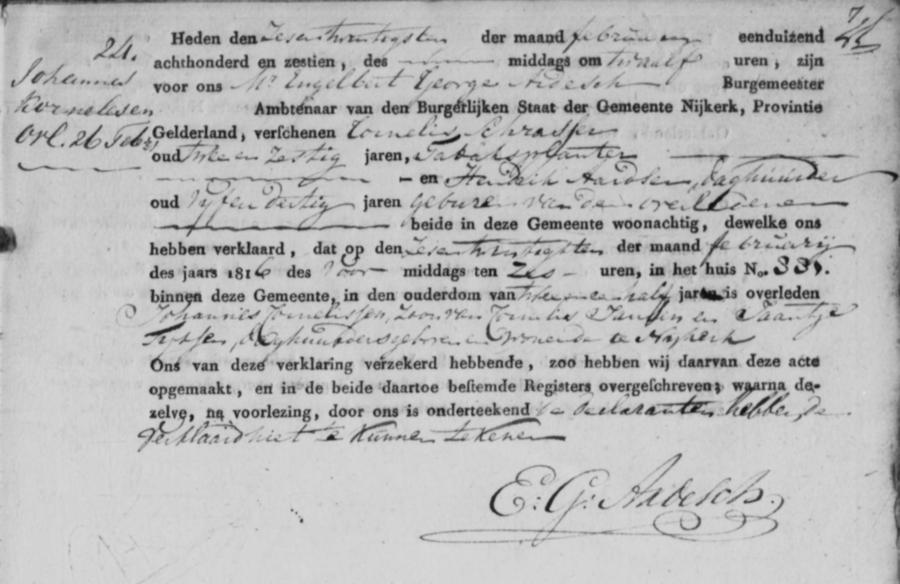 24.
Johannes
Kornelissen
Orl. 26 Feb.
Heden den Zesentwintigsten der maand februarij eenduizend
achthonderd en zestien, des middags om twaalf uren, zijn
voor ons Mr. Engelbert George Ardesch Burgemeester
Ambtenaar van den Burgerlijken Staat der Gemeente Nijkerk, Provintie
Gelderland, verschenen Cornelis Schrassen
oud twee en Zestig jaren, Tabaksplanter
en Hendrik Aardsen, daghuurder
oud Vyf en dertig jaren geburen van den overledenen
beide in deze Gemeente woonachtig, dewelke ons
hebben verklaard, dat op den Zesentwintigsten der maand februarij
des jaars 1816 des Voor middags ten Zes uren, in het huis No. 331.
binnen deze Gemeente, in den ouderdom van twee en een half jaren is overleden
Johannes Cornelissen, Zoon van Cornelis Jansen en Jaantje
daghuurders geboren en wonende te Nijkerk
Ons van deze verklaring verzekerd hebbende, zoo hebben wij daarvan deze acte
opgemaakt, en in de beide daartoe bestemde Registers overgeschreven; waarna de-
zelve, na voorlezing, door ons is onderteekend de declaranten hebbende
verklaard niet te kunnen tekenen
E: G: Ardesch.